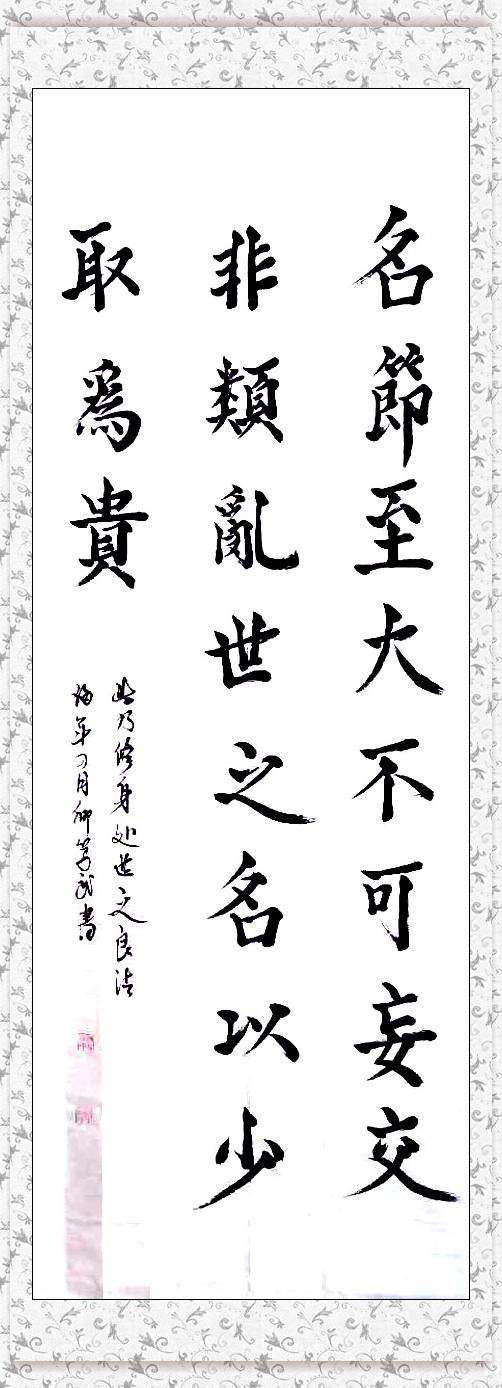 名節至大不可妄交
非類亂世之名以少
取為貴
此乃修身处世之良法
年 月 書